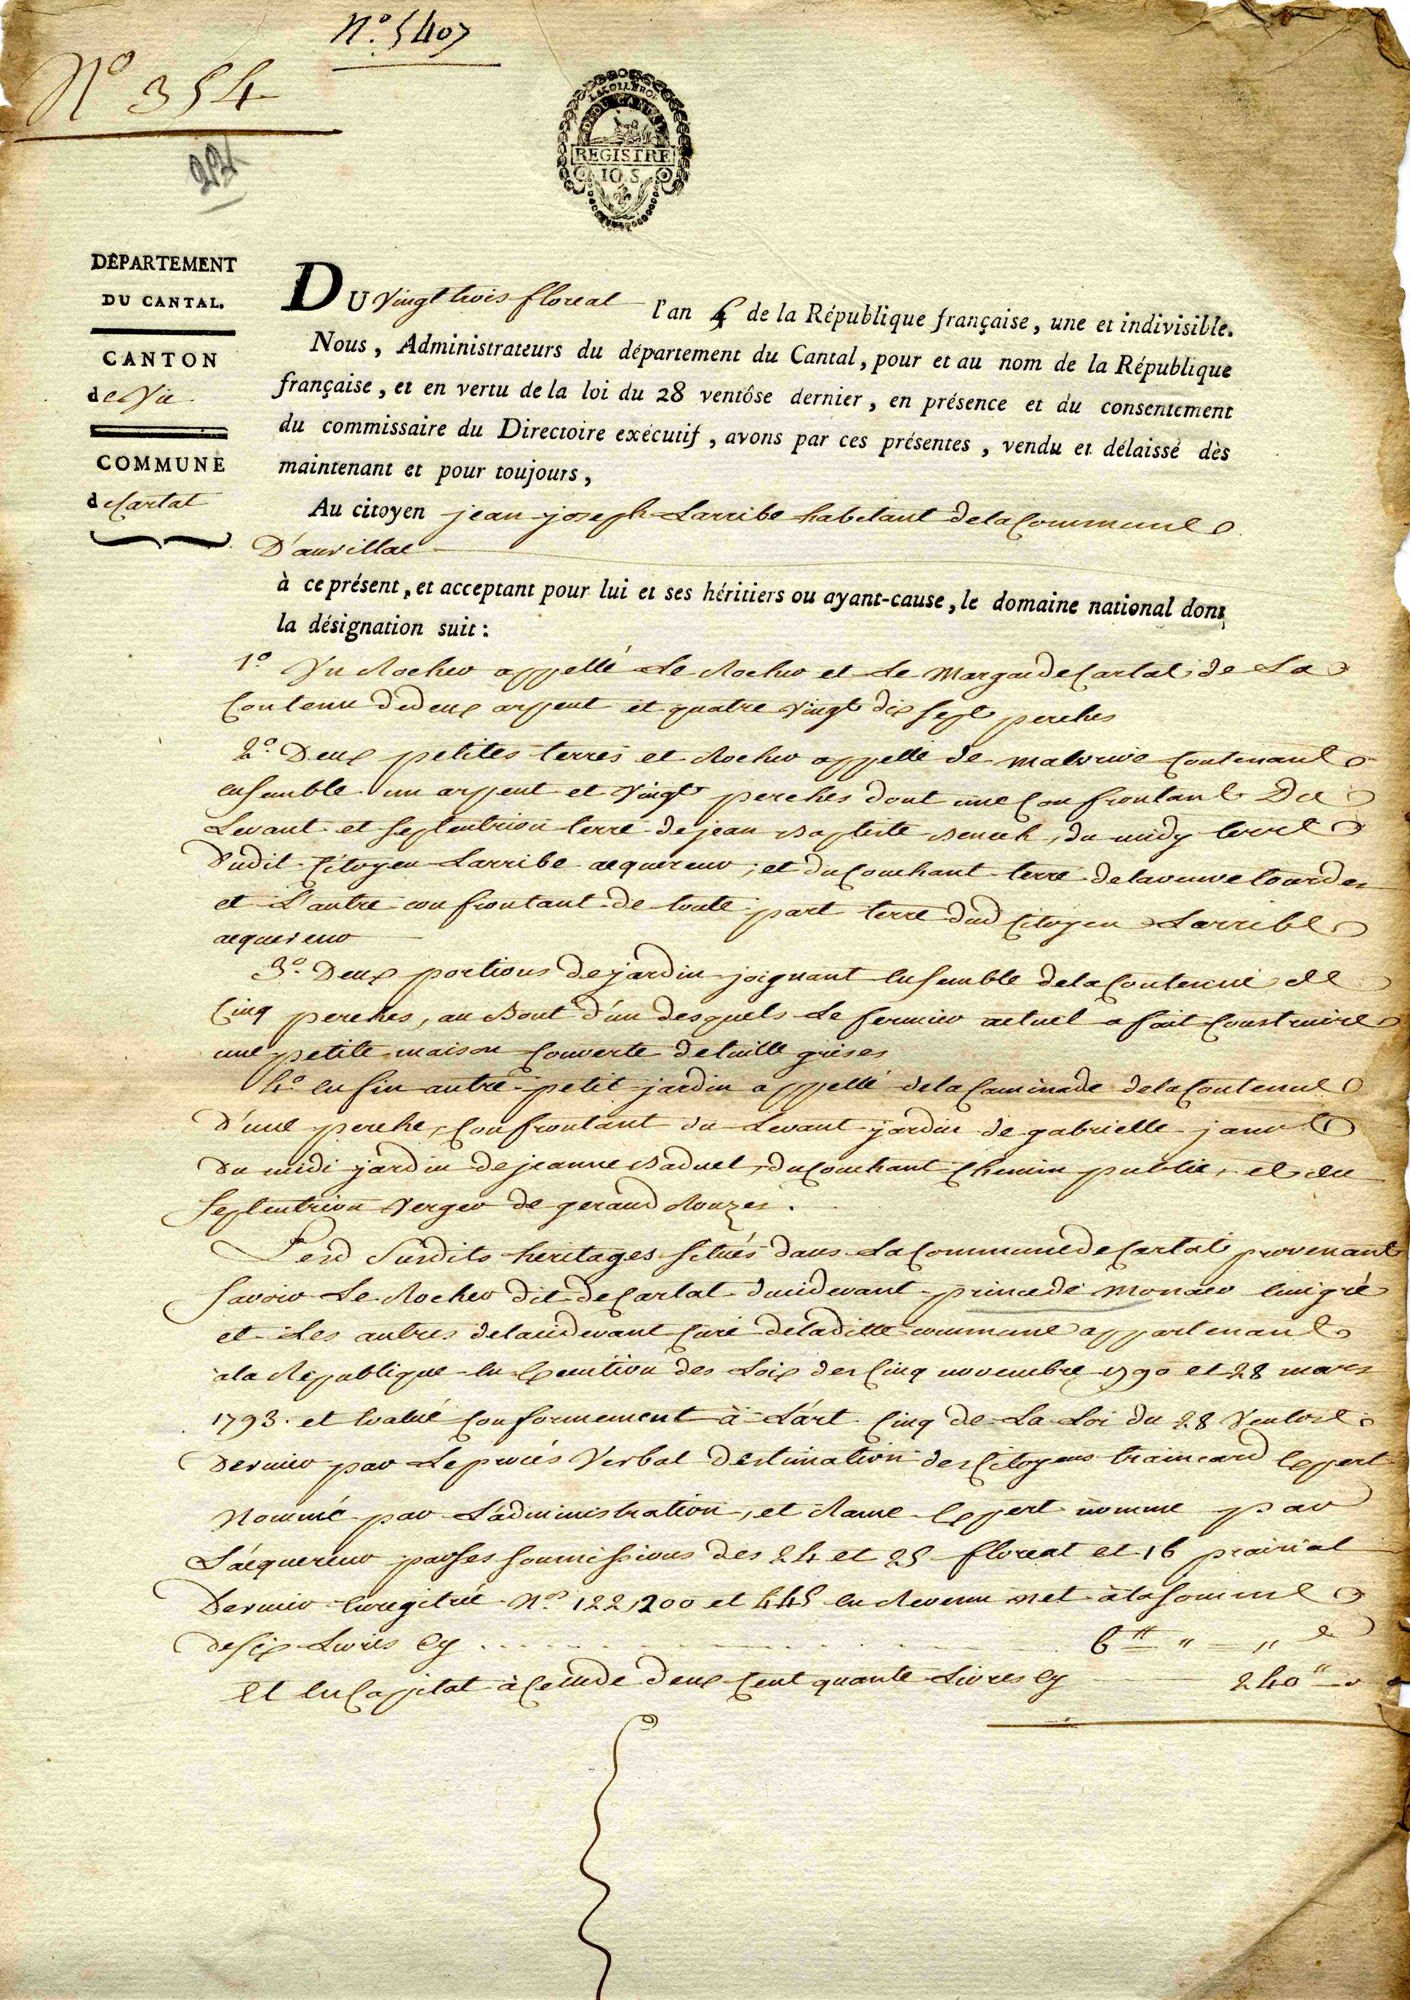 N.º 5407
Nº 354
224
DU CANTAL
REGISTRE
10. S.
DÉPARTEMENT
DU CANTAL.
CANTON
de Vic
COMMUNE
de Carlat
DU vingt trois floreal l'an 4 de la République française, une et indivisible.
Nous, Administrateurs du département du Cantal, pour et au nom de la République
française, et en vertu de la loi du 28 ventôse dernier, en présence et du consentement
du commissaire du Directoire exécutif, avons par ces présentes, vendu et délaissé dès
maintenant et pour toujours,
Au citoyen jean joseph Larribe habitant de la Commune
D'aurillac
à ce présent, et acceptant pour lui et ses héritiers ou ayant-cause, le domaine national dont
la désignation suit :
1º Un Rocher appellé Le Rocher et Le Margai de Carlat de La
Contenu de deux arpent et quatre vingt dix sept perches
2º Deux petites terres et Rocher appellé de Contenant
ensemble un arpent et vingt perches dont une Confrontant Du
Levant et septentrion terre de jean Baptiste Benech, du midy terre
Dudit Citoyen Larribe acquereur, et du Couchant terre de la veuve
et L'autre confrontant de toute part terre dud Citoyen Larribe
acquereur
3º Deux portions de jardin joignant ensemble de la Contenue de
Cinq perches, au Bout d'un desquels Le fermier actuel a fait Construire
une petite maison Couverte de tuille grises
4º enfin autre petit jardin appellé de la Caminade de la Contenue
D'une perche, Confrontant du Levant jardin de gabrielle
Du midi jardin de jeanne Baduel, du Couchant Chemin public, et du
septentrion verger de geraud Rouzes.
Lesd Susdits héritages situés dans La Commune de Carlat provenant
savoir Le Rocher dit de Carlat du cidevant prince de Monaco émigré
et Les autres de la cidevant Cure de la ditte commune appartenant
à la Republique en Execution des Loix des Cinq novembre 1790 et 28 mars
1793. et Evalué Conformement à L'art Cinq de La Loi du 28 Ventose
Dernier par Le procès Verbal D'estimation des Citoyens Expert
Nommé par L'administration, et Rame Expert nommé par
L'acquereur par ses soumissions des 24 et 25 floreal et 16 prairial
Dernier Enregitré Nos 122, 200 et 445 en Revenu net à la somme
de six Livres Cy ... 6# " — "
Et en Capital à Celle de Deux Cent quante Livres Cy — 240# —